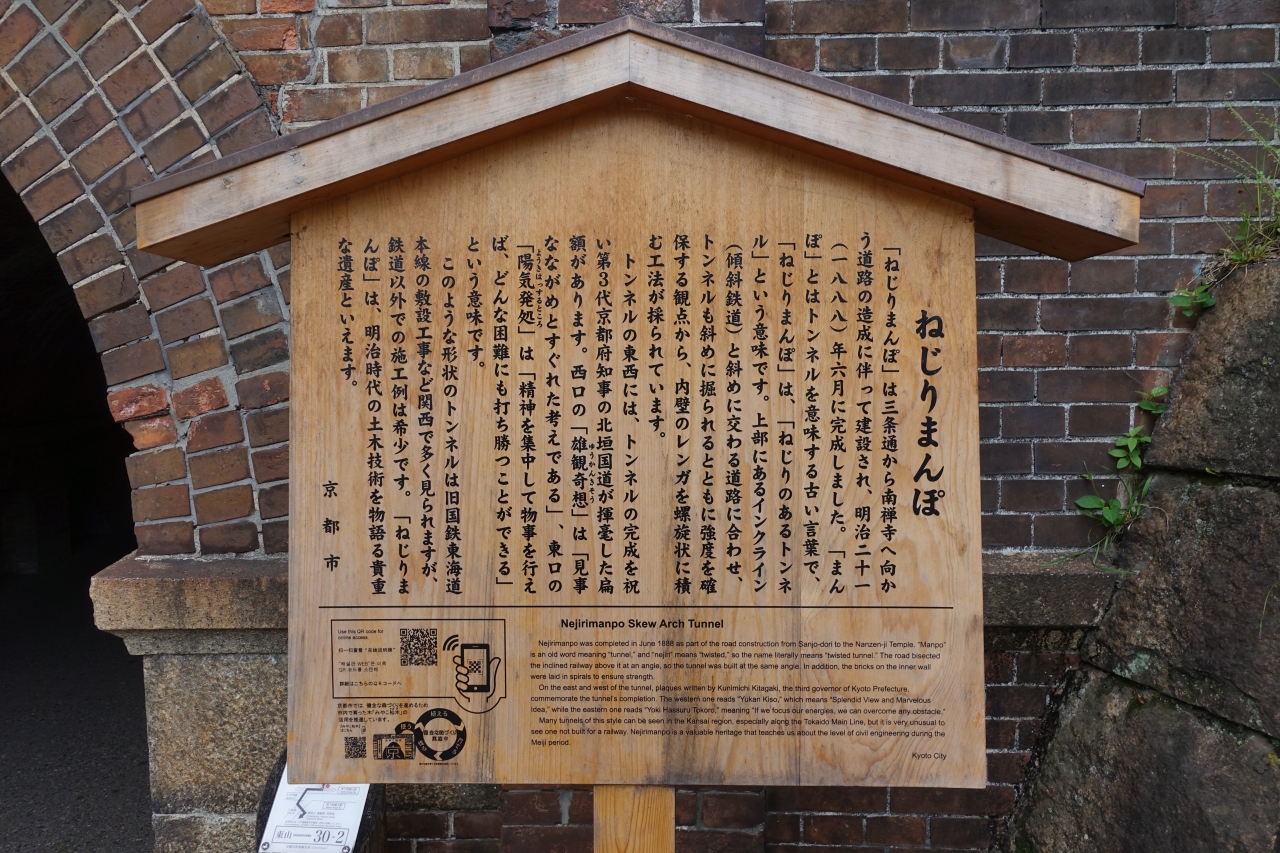 ねじりまんぽ
「ねじりまんぽ」は三条通から南禅寺へ向か
う道路の造成に伴って建設され、明治二十一
（一八八八）年六月に完成しました。「まん
ぽ」とはトンネルを意味する古い言葉で、
「ねじりまんぽ」は、「ねじりのあるトンネ
ル」という意味です。上部にあるインクライン
（傾斜鉄道）と斜めに交わる道路に合わせ、
トンネルも斜めに掘られるとともに強度を確
保する観点から、内壁のレンガを螺旋状に積
む工法が採られています。
トンネルの東西には、トンネルの完成を祝
い第3代京都府知事の北垣国道が揮毫した扁
額があります。西口の「雄観奇想」は「見事
ゆうかんきそう
なながめとすぐれた考えである」、東口の
「陽気発処」は「精神を集中して物事を行え
ようきはっするところ
ば、どんな困難にも打ち勝つことができる」
という意味です。
このような形状のトンネルは旧国鉄東海道
本線の敷設工事など関西で多く見られますが、
鉄道以外での施工例は希少です。「ねじりま
んぽ」は、明治時代の土木技術を物語る貴重
な遺産といえます。
京都市
Nejirimanpo Skew Arch Tunnel
Nejirimanpo was completed in June 1888 as part of the road construction from Sanjo-dori to the Nanzen-ji Temple. "Manpo"
is an old word meaning "tunnel," and "nejiri" means "twisted," so the name literally means "twisted tunnel." The road bisected
the inclined railway above it at an angle, so the tunnel was built at the same angle. In addition, the bricks on the inner wall
were laid in spirals to ensure strength.
On the east and west of the tunnel, plaques written by Kunimichi Kitagaki, the third governor of Kyoto Prefecture,
commemorate the tunnel's completion. The western one reads "Yukan Kiso," which means "Splendid View and Marvelous
Idea," while the eastern one reads "Yoki Hassuru Tokoro," meaning "If we focus our energies, we can overcome any obstacle."
Many tunnels of this style can be seen in the Kansai region, especially along the Tokaido Main Line, but it is very unusual to
see one not built for a railway. Nejirimanpo is a valuable heritage that teaches us about the level of civil engineering during the
Meiji period.
Kyoto City
Use this QR code for
online access
扫一扫查看
詳細はこちらのQRコードへ
京都市では、健全な森づくりを進めるため、
市内で育った木「みやこ杣木」の
活用を推進しています。
植える
東山
30-2